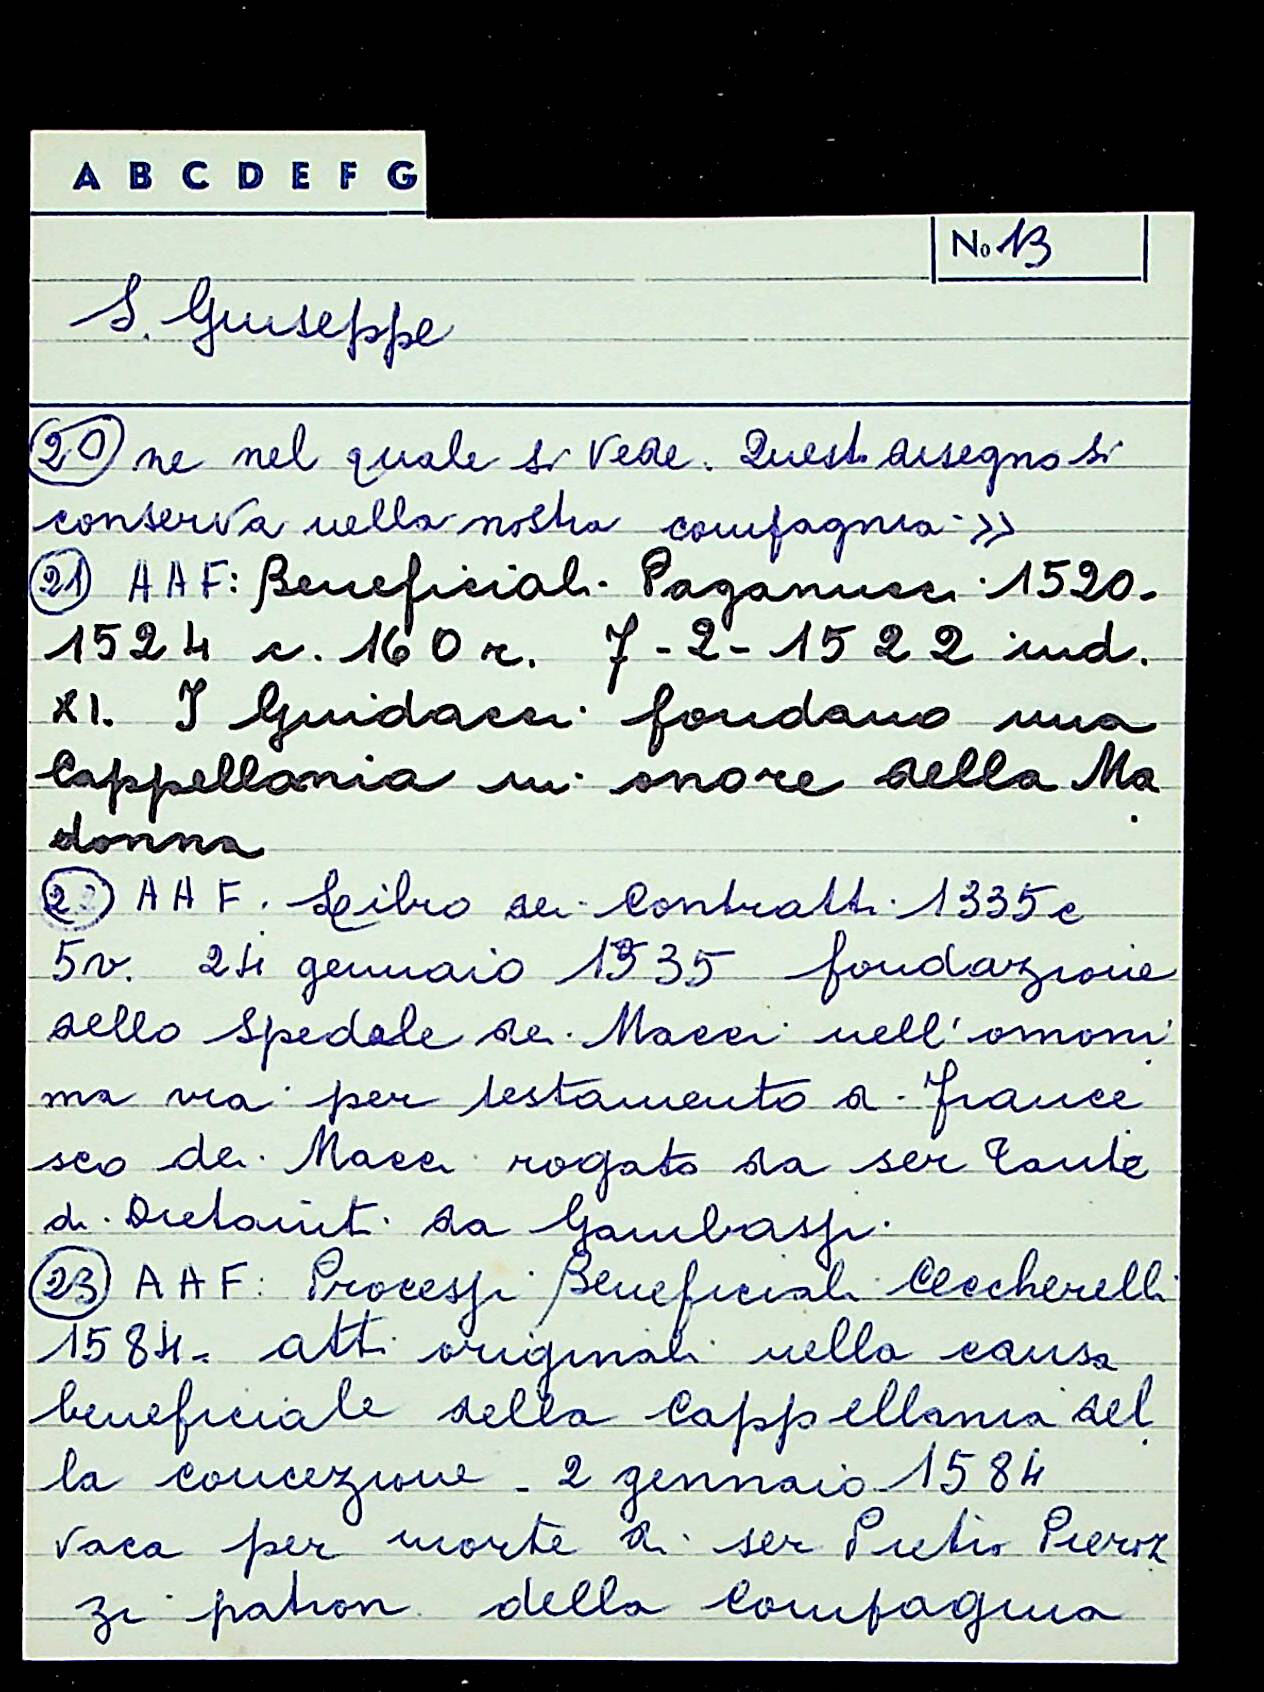 A B C D E F G
No 13
S. Giuseppe
20 ne nel quale si vede. Questo disegno si
conserva nella nostra compagnia. »
21 AAF: Beneficiali Paganucci 1520-
1524 c. 160 r. 7-2-1522 ind.
XI. I Guidacci fondano una
Cappellania in onore della Ma
donna
22 AAF. Libro dei Contratti 1335 c
5v. 24 gennaio 1335 fondazione
dello Spedale dei Macci nell'omoni
ma via per testamento di France
sco dei Macci rogato da ser Tante
di da Gambassi.
23 AAF: Processi Beneficiali Ceccherelli
1584. atti originali nella causa
beneficiale della Cappellania del
la concezione - 2 gennaio 1584
vaca per morte di ser Pietro Pieroz
zi patron della Compagnia